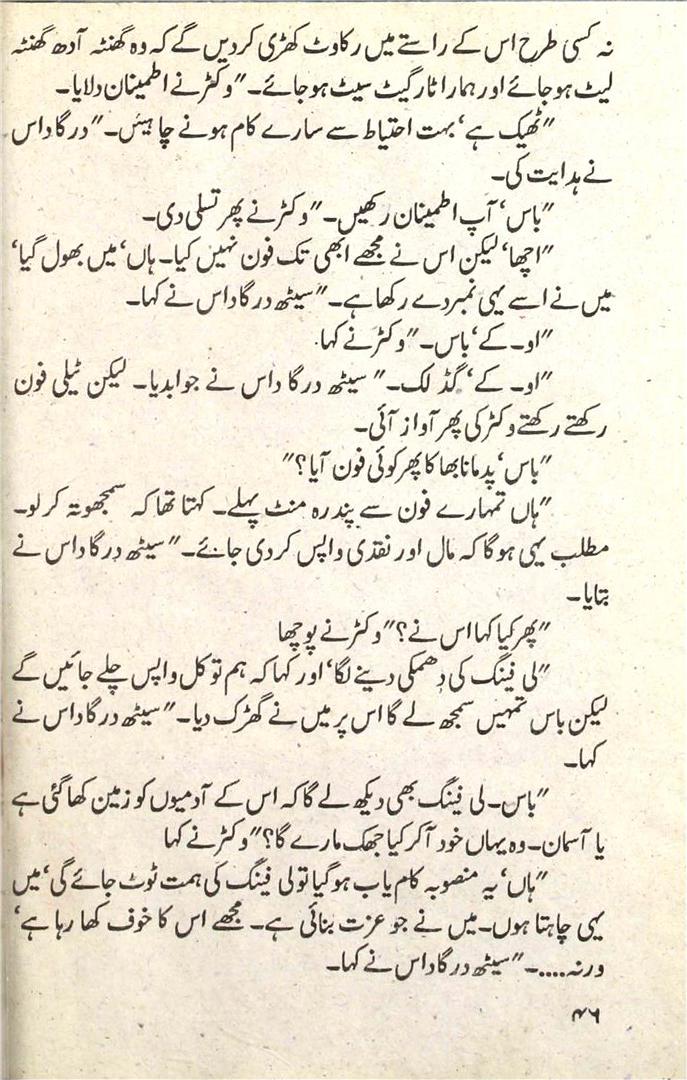 نہ کسی طرح اس کے راستے میں رکاوٹ کھڑی کردیں گے کہ وہ گھنٹہ آدھ گھنٹہ
لیٹ ہوجائے اور ہمارا ٹارگیٹ سیٹ ہوجائے۔" وکٹر نے اطمینان دلایا۔
"ٹھیک ہے‘ بہت احتیاط سے سارے کام ہونے چاہیئں۔" درگاداس
نے ہدایت کی۔
"باس‘ آپ اطمینان رکھیں۔" وکٹر نے پھر تسلی دی۔
"اچھا‘ لیکن اس نے مجھے ابھی تک فون نہیں کیا۔ ہاں‘ میں بھول گیا‘
میں نے اسے یہی نمبر دے رکھا ہے۔" سیٹھ درگاداس نے کہا۔
"او۔ کے‘ باس۔" وکٹر نے کہا.
"او۔ کے‘ گڈ لک۔" سیٹھ درگا داس نے جوابدیا۔ لیکن ٹیلی فون
رکھتے رکھتے وکٹر کی پھر آواز آئی۔
"باس‘ پدمانابھا کا پھر کوئی فون آیا؟"
"ہاں تمہارے فون سے پندرہ منٹ پہلے۔ کہتا تھا کہ سمجھوتہ کرلو۔
مطلب یہی ہوگا کہ مال اور نقدی واپس کردی جائے۔" سیٹھ درگاداس نے
بتایا۔
"پھر کیا کہا اس نے؟" وکٹر نے پوچھا
"لی فینگ کی دھمکی دینے لگا‘ اور کہا کہ ہم تو کل واپس چلے جائیں گے
لیکن باس تمہیں سمجھ لے گا اس پر میں نے گھڑک دیا۔" سیٹھ درگاداس نے
کہا۔
"باس۔ لی فینگ بھی دیکھ لے گا کہ اس کے آدمیوں کو زمین کھا گئی ہے
یا آسمان۔ وہ یہاں خود آکر کیا جھک مارے گا؟" وکٹر نے کہا
"ہاں‘ یہ منصوبہ کام یاب ہوگیا تو لی فینگ کی ہمت ٹوٹ جائے گی‘ میں
یہی چاہتا ہوں۔ میں نے جو عزت بنائی ہے۔ مجھے اس کا خوف کھا رہا ہے‘
ورنہ....۔" سیٹھ درگاداس نے کہا۔
۴۶